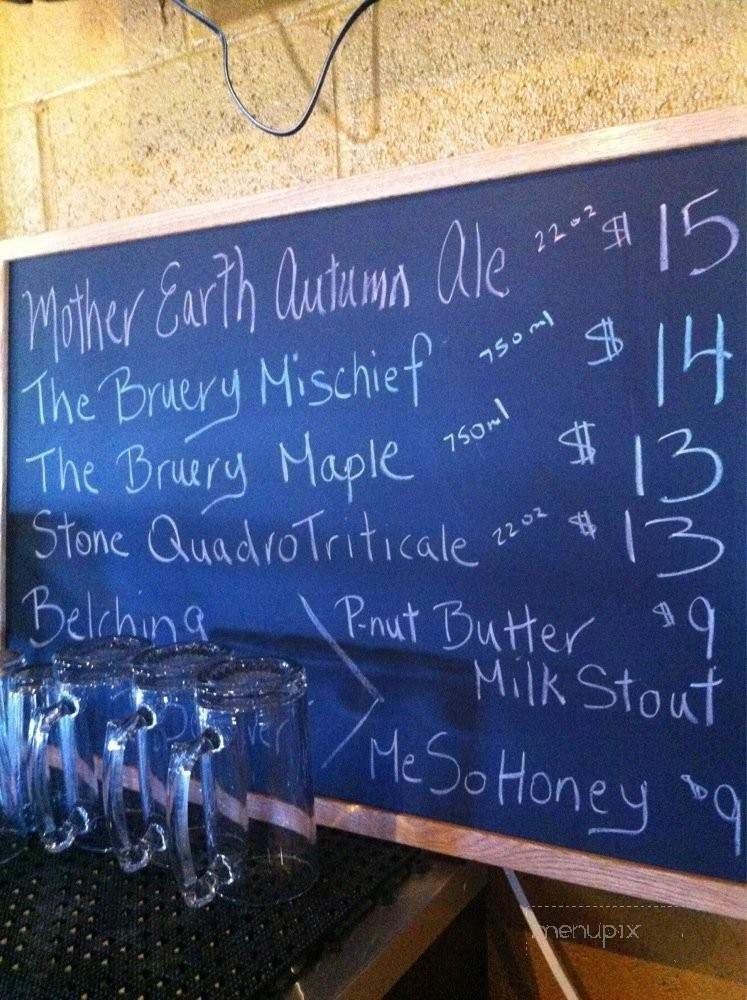 Mother Earth Autumn Ale 22oz $ 15
The Bruery Mischief 750ml $ 14
The Bruery Maple 750ml $ 13
Stone QuadroTriticale 22oz $ 13
Belching
P-nut Butter $9
Milk Stout
MeSoHoney $9
menupix